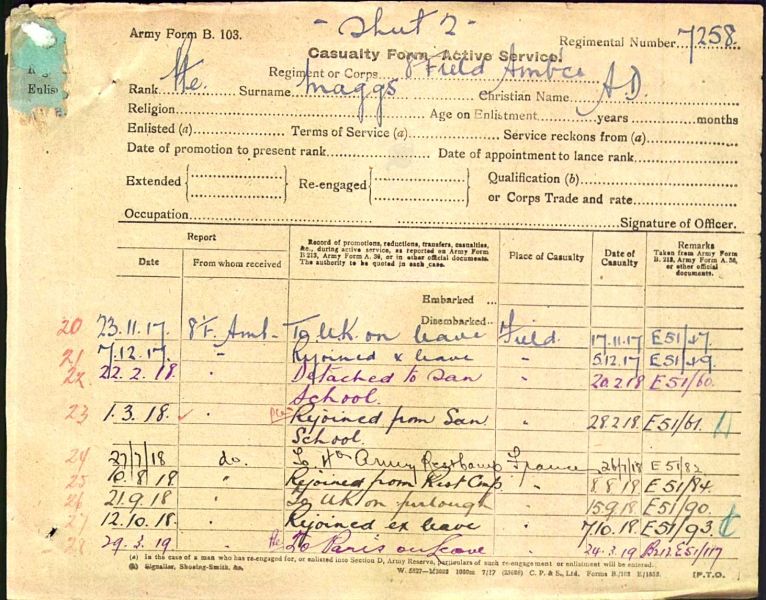 - Sheet 2 -
Army Form B. 103.
Regimental Number 7258.
Casualty Form—Active Service.
Regiment or Corps 8 Field Ambce
Rank Pte. Surname Maggs Christian Name A.D.
Religion Age on Enlistment years months
Enlisted (a) Terms of Service (a) Service reckons from (a)
Date of promotion to present rank Date of appointment to lance rank
Extended Re-engaged Qualification (b)
or Corps Trade and rate
Occupation Signature of Officer.
Report
Date From whom received
Record of promotions, reductions, transfers, casualties,
&c., during active service, as reported on Army Form
B 213, Army Form A. 36, or in other official documents.
The authority to be quoted in each case.
Place of Casualty
Date of
Casualty
Remarks
Taken from Army Form
B. 213, Army Form A. 36,
or other official
documents.
Embarked
Disembarked
20 23.11.17. 8 F. Amb. To U.K. on leave Field 17.11.17 E51/47.
21 7.12.17 " Rejoined x leave " 5.12.17 E51/49.
22 22.2.18 " Detached to San " 20.2.18 E51/60.
School.
23 1.3.18. " Rejoined from San. " 28.2.18. E51/61.
School.
24 27/7/18 do. To Army Rest Camp France 26/7/18 E51/82
25 10.8.18 " Rejoined from Rest Cmp. " 8.8.18 E51/84.
26 21.9.18 " To UK on furlough " 15.9.18 E51/90.
27 12.10.18 " Rejoined ex leave " 7/10.18 E51/93.
28 29.3.19 " To Paris on Leave " 24.3.19 B213 E51/117
(a) In the case of a man who has re-engaged for, or enlisted into Section D, Army Reserve, particulars of such re-engagement or enlistment will be entered.
(b) Signaller, Shoeing-Smith, &c.
C. P. & S., Ltd. Forms B./103 E./1855. [P.T.O.